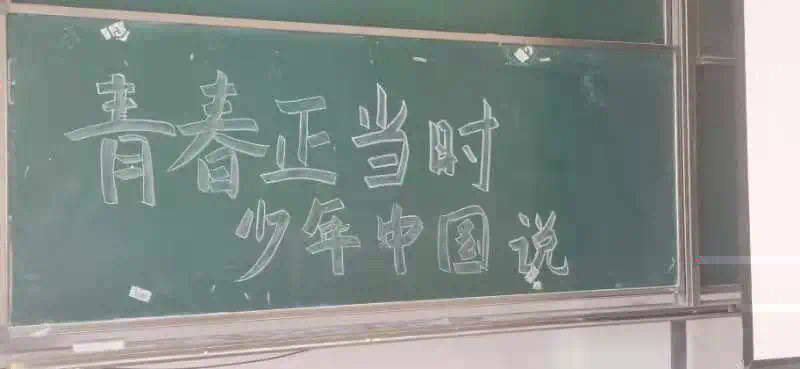 青春正当时
少年中国说